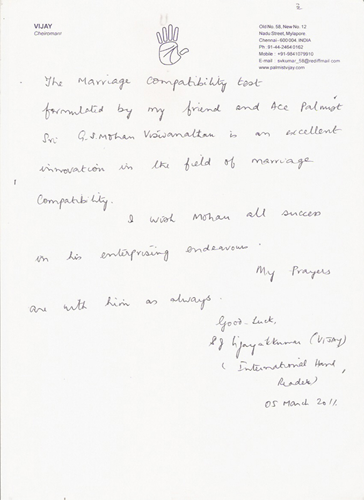 VIJAY
Cheiromair
Old No. 58, New No. 12
Nadu Street, Mylapore
Chennai - 600 004. INDIA
Ph : 91-44-2464 0162
Mobile : +91-9841079910
www.palmistvijay.com
The Marriage Compatibility test
formulated by my friend and Ace Palmist
Sri G.S. Mohan Viswanathan is an excellent
innovation in the field of marriage
Compatibility.
I wish Mohan all success
in his enterprising endeavour.
My Prayers
are with him as always.
Good-Luck,
(Vijay)
(International Hand
Reader)
05 March 2011